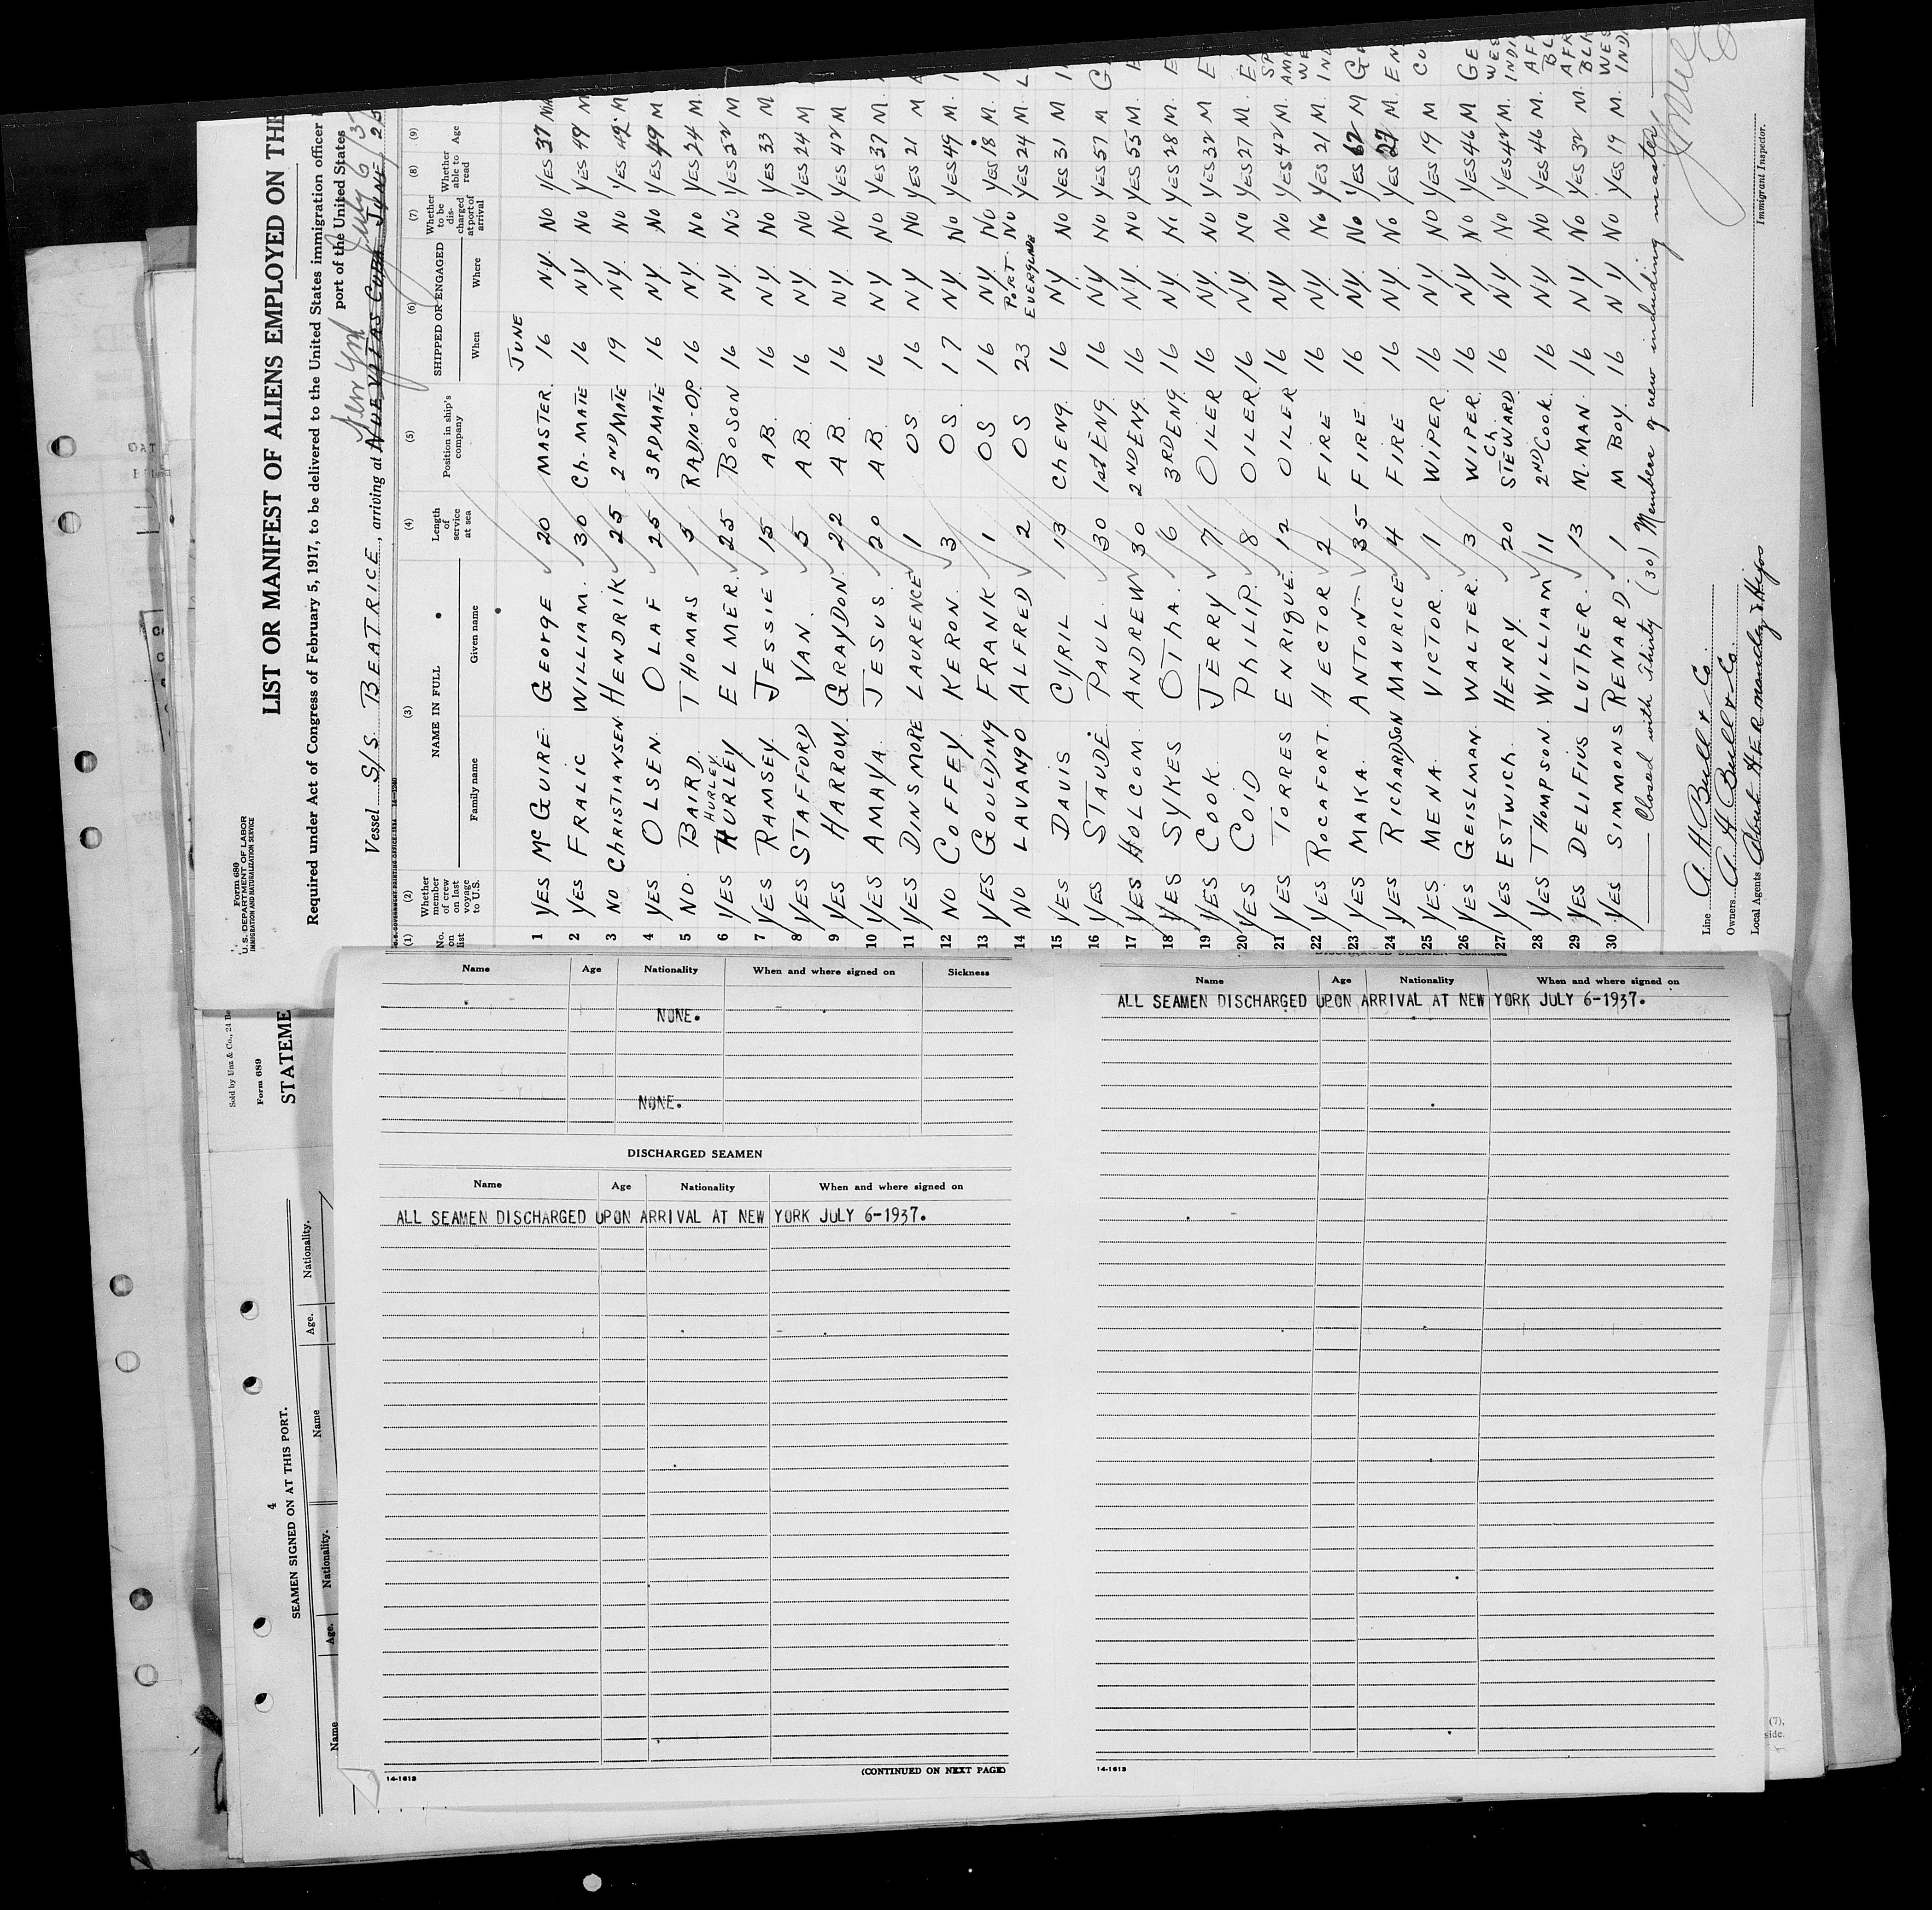 Form 680
U. S. DEPARTMENT OF LABOR
IMMIGRATION AND NATURALIZATION SERVICE
LIST OR MANIFEST OF ALIENS EMPLOYED ON THE
Required under Act of Congress of February 5, 1917, to be delivered to the United States immigration officer
port of the United States
New York July 6/3
Vessel S/S. BEATRICE, arriving at NUEVITAS CUBA JUNE 25
(1) (2) (3) (4) (5) (6) (7) (8) (9)
No. on list Whether member of crew on last voyage to U.S. NAME IN FULL Family name Given name Length of service at sea Position in ship's company SHIPPED OR ENGAGED When Where Whether to be discharged at port of arrival Whether able to read Age
JUNE
1 YES McGUIRE GEORGE 20 MASTER 16 NY. No YES 37 M
2 YES FRALIC WILLIAM. 30 Ch-MATE 16 NY No YES 49 M
3 NO CHRISTIANSEN HENDRIK 25 2ND MATE 19 NY. No YES 49 M
4 YES OLSEN OLAF 25 3RD MATE 16 NY. No YES 49 M
5 NO. BAIRD. THOMAS 5 RADIO-OP. 16 NY. No YES 24 M.
HURLEY.
6 YES HURLEY ELMER. 25 BOSON 16 NY. No YES 52 M
7 YES RAMSEY. JESSIE 15 AB. 16 NY. No YES 33 M
8 YES STAFFORD VAN. 5 AB. 16 NY. No YES 24 M
9 YES HARROW. GRAYDON. 22 AB 16 NY. No YES 42 M
10 YES AMAYA. JESUS. 20 AB 16 NY No YES 37 M.
11 YES DINSMORE LAURENCE 1 OS 16 NY No YES 21 M
12 NO COFFEY. KERON. 3 OS. 17 NY. No YES 49 M.
13 YES GOULDING FRANK 1 OS 16 NY. No YES 18 M.
14 NO LAVANGO ALFRED 2 OS 23 PORT EVERGLADE No YES 24 M.
15 YES DAVIS CYRIL 13 Ch ENG. 16 NY No YES 31 M
16 YES STAUDE PAUL. 30 1st ENG. 16 NY No YES 57 M
17 YES HOLCOM. ANDREW 30 2ND ENG 16 NY. No YES 55 M.
18 YES SYKES OTHA. 6 3RD ENG 16 NY No YES 28 M.
19 YES COOK. JERRY 7 OILER 16 NY. No YES 32 M
20 YES COID PHILIP. 8 OILER 16 NY. No YES 27 M.
21 YES TORRES ENRIQUE. 12 OILER 16 NY No YES 42 M.
22 YES ROCAFORT. HECTOR 2 FIRE 16 NY. No YES 21 M.
23 YES MAKA. ANTON 35 FIRE. 16 NY. No YES 62 M
24 YES RICHARDSON MAURICE 4 FIRE 16 NY. No YES 27 M.
25 YES. MENA. VICTOR. 1 WIPER. 16 NY No YES 19 M
26 YES GEISLMAN. WALTER. 3 WIPER. 16 NY No YES 46 M
27 YES ESTWICH. HENRY. 20 Ch STEWARD 16 NY. No YES 42 M.
28 YES THOMPSON. WILLIAM 11 2ND COOK. 16 NY No YES 46 M.
29 YES DELIFIUS LUTHER. 13 M. MAN. 16 NY No YES 32 M.
30 YES SIMMONS RENARD. 1 M BOY. 16 NY No YES 19 M.
Closed with Thirty (30) Members of crew including master
Line A. H Bull & Co.
Owners A H Bull & Co.
Local Agents
Immigrant Inspector.
Sold by Unz & Co., 24 Be
Form 689
STATEME
4
SEAMEN SIGNED ON AT THIS PORT.
Name Age. Nationality. Name Age. Nationality.
Name Age Nationality When and where signed on Sickness
NONE.
NONE.
DISCHARGED SEAMEN
Name Age Nationality When and where signed on
ALL SEAMEN DISCHARGED UPON ARRIVAL AT NEW YORK JULY 6-1937.
14-1613
(CONTINUED ON NEXT PAGE)
DISCHARGED SEAMEN—Continued
Name Age Nationality When and where signed on
ALL SEAMEN DISCHARGED UPON ARRIVAL AT NEW YORK JULY 6-1937.
14-1613
(7),
side.